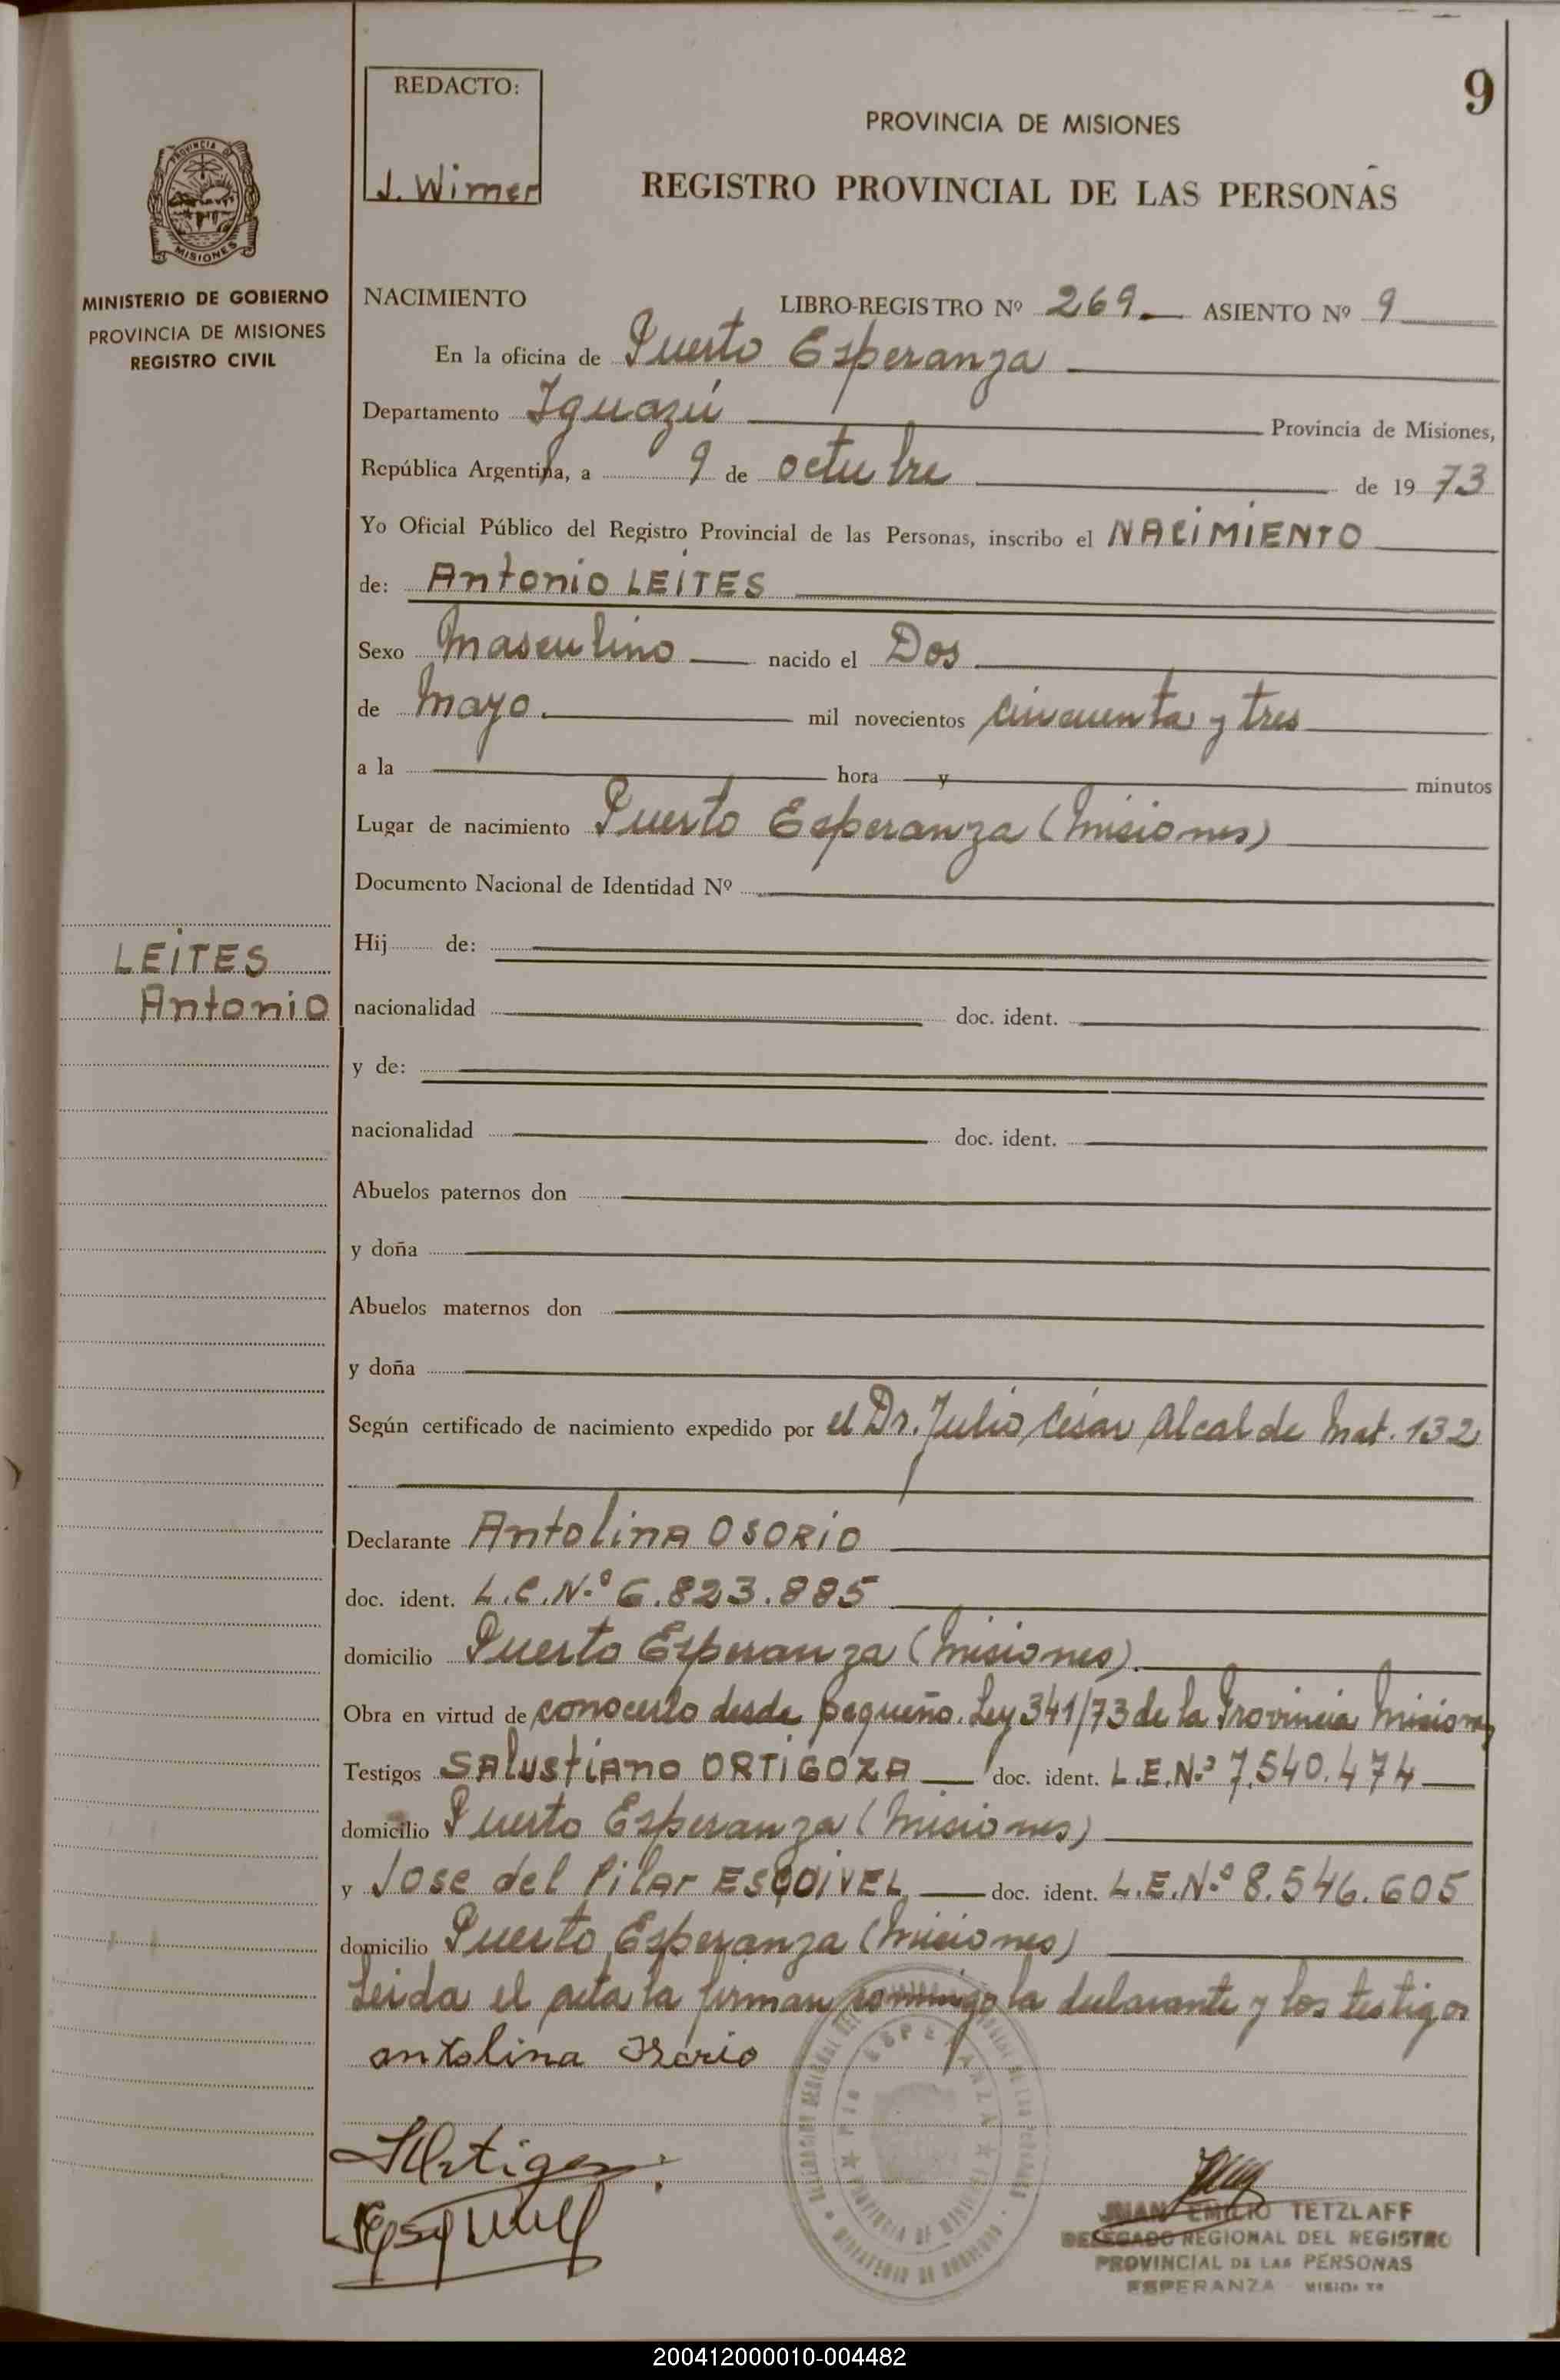 9
REDACTO:
J. Wimer
PROVINCIA DE MISIONES
REGISTRO PROVINCIAL DE LAS PERSONAS
PROVINCIA DE
MISIONES
MINISTERIO DE GOBIERNO
PROVINCIA DE MISIONES
REGISTRO CIVIL
NACIMIENTO LIBRO-REGISTRO Nº 269 ASIENTO Nº 9
En la oficina de Puerto Esperanza
Departamento Iguazú Provincia de Misiones,
República Argentina, a 9 de octubre de 1973
Yo Oficial Público del Registro Provincial de las Personas, inscribo el NACIMIENTO
de: Antonio LEITES
Sexo Masculino nacido el Dos
de Mayo mil novecientos cincuenta y tres
a la hora y minutos
Lugar de nacimiento Puerto Esperanza (Misiones)
Documento Nacional de Identidad Nº
LEITES
Antonio
Hij de:
nacionalidad doc. ident.
y de:
nacionalidad doc. ident.
Abuelos paternos don
y doña
Abuelos maternos don
y doña
Según certificado de nacimiento expedido por el Dr. Julio César Alcalde Mat. 132
Declarante Antolina OSORIO
doc. ident. L.C.N.º 6.823.885
domicilio Puerto Esperanza (Misiones)
Obra en virtud de conocerlo desde pequeño. Ley 341/73 de la Provincia Misiones
Testigos SALUSTIANO ORTIGOZA doc. ident. L.E.N.º 7.540.474
domicilio Puerto Esperanza (Misiones)
y Jose del Pilar ESQUIVEL doc. ident. L.E.N.º 8.546.605
domicilio Puerto Esperanza (Misiones)
Leida el acta la firman conmigo la declarante y los testigos
antolina Osorio
Esquivel
JUAN EMILIO TETZLAFF
DELEGADO REGIONAL DEL REGISTRO
PROVINCIAL DE LAS PERSONAS
ESPERANZA
200412000010-004482